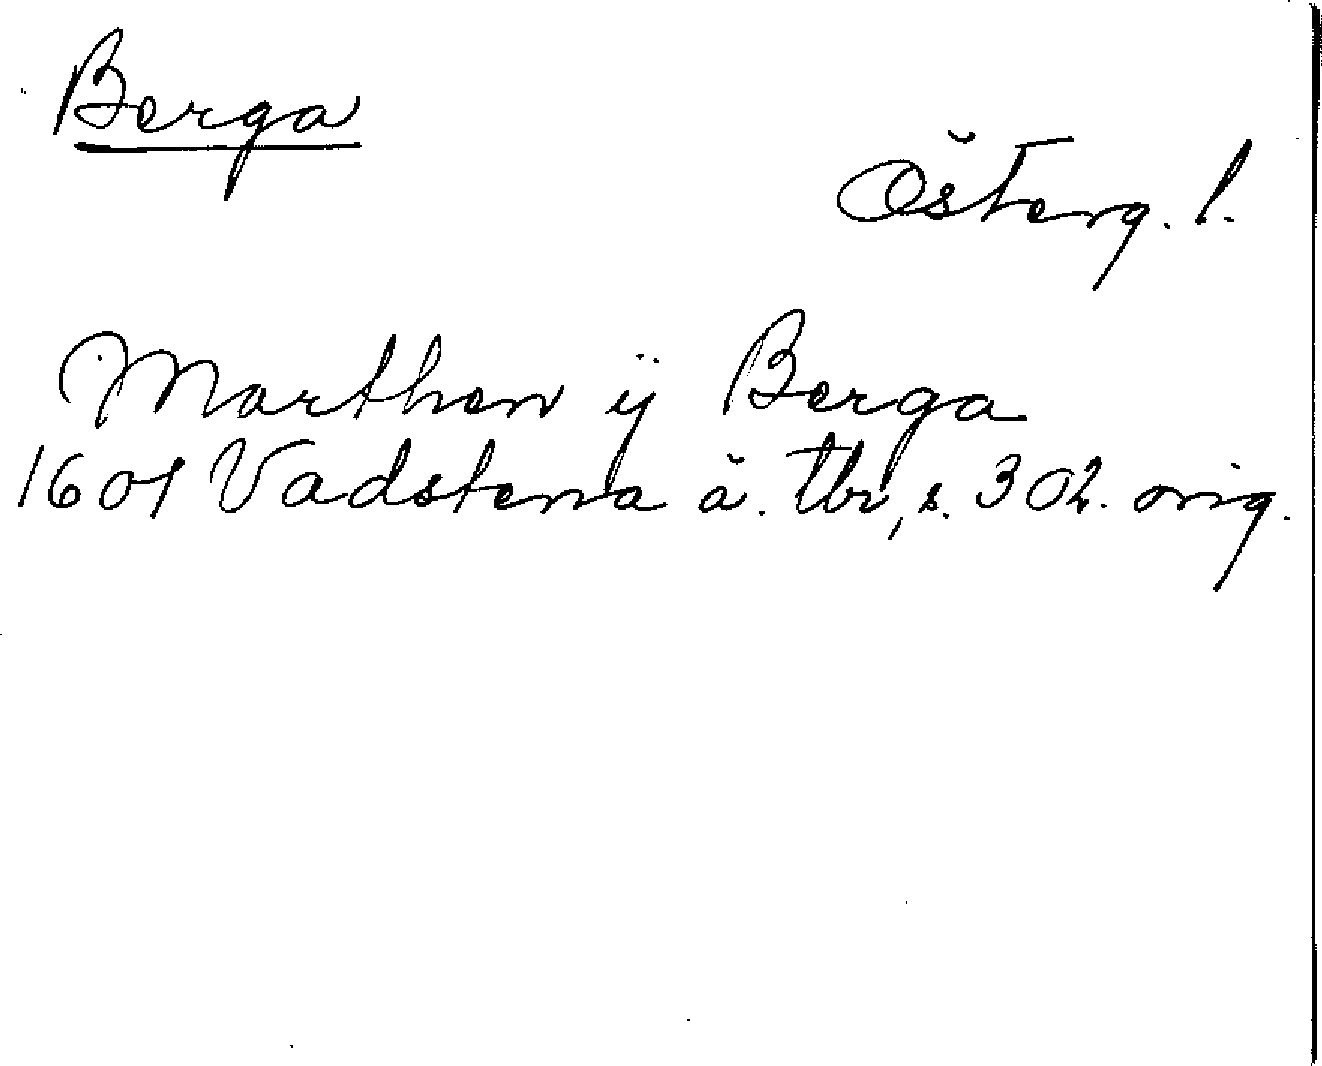 Berga
Österg. l.
Marthen ÿ Berga
1601 Vadstena ä. tbr, s. 302. orig.